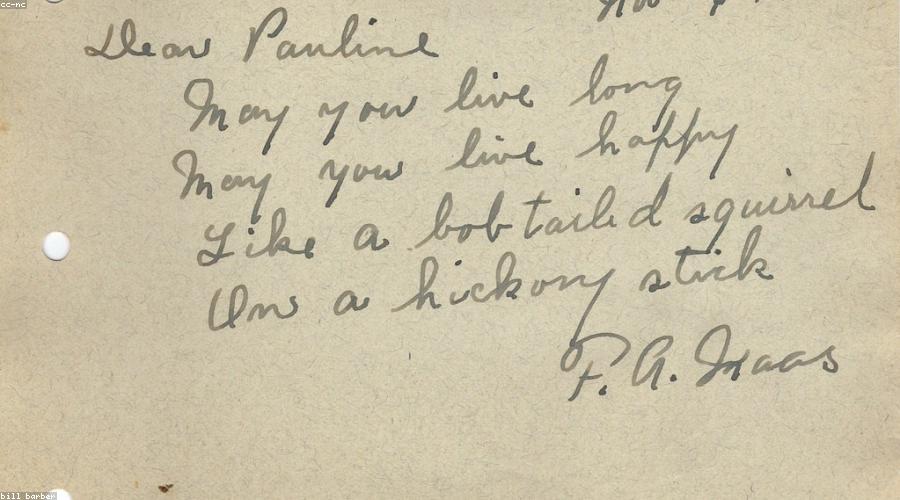 cc-nc
Nov
Dear Pauline
May you live long
May you live happy
Like a bobtailed squirrel
On a hickory stick
F. A. Maas
bill barber